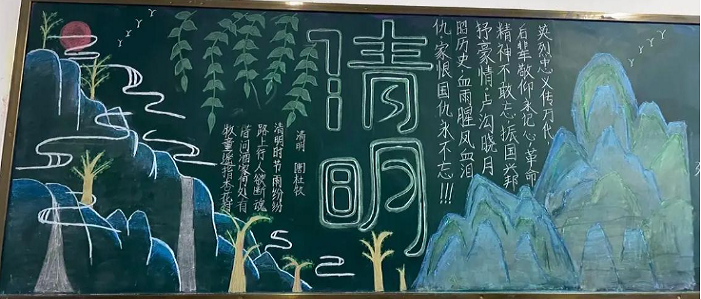 英烈忠义传万代
后辈敬仰永记心,革命
精神不敢忘振国兴邦
抒豪情,卢沟晓月
昭历史,血雨腥风血泪
仇家恨国仇永不忘!!!
清明
清明 杜牧
清明时节雨纷纷
路上行人欲断魂
借问酒家何处有
牧童遥指杏花村